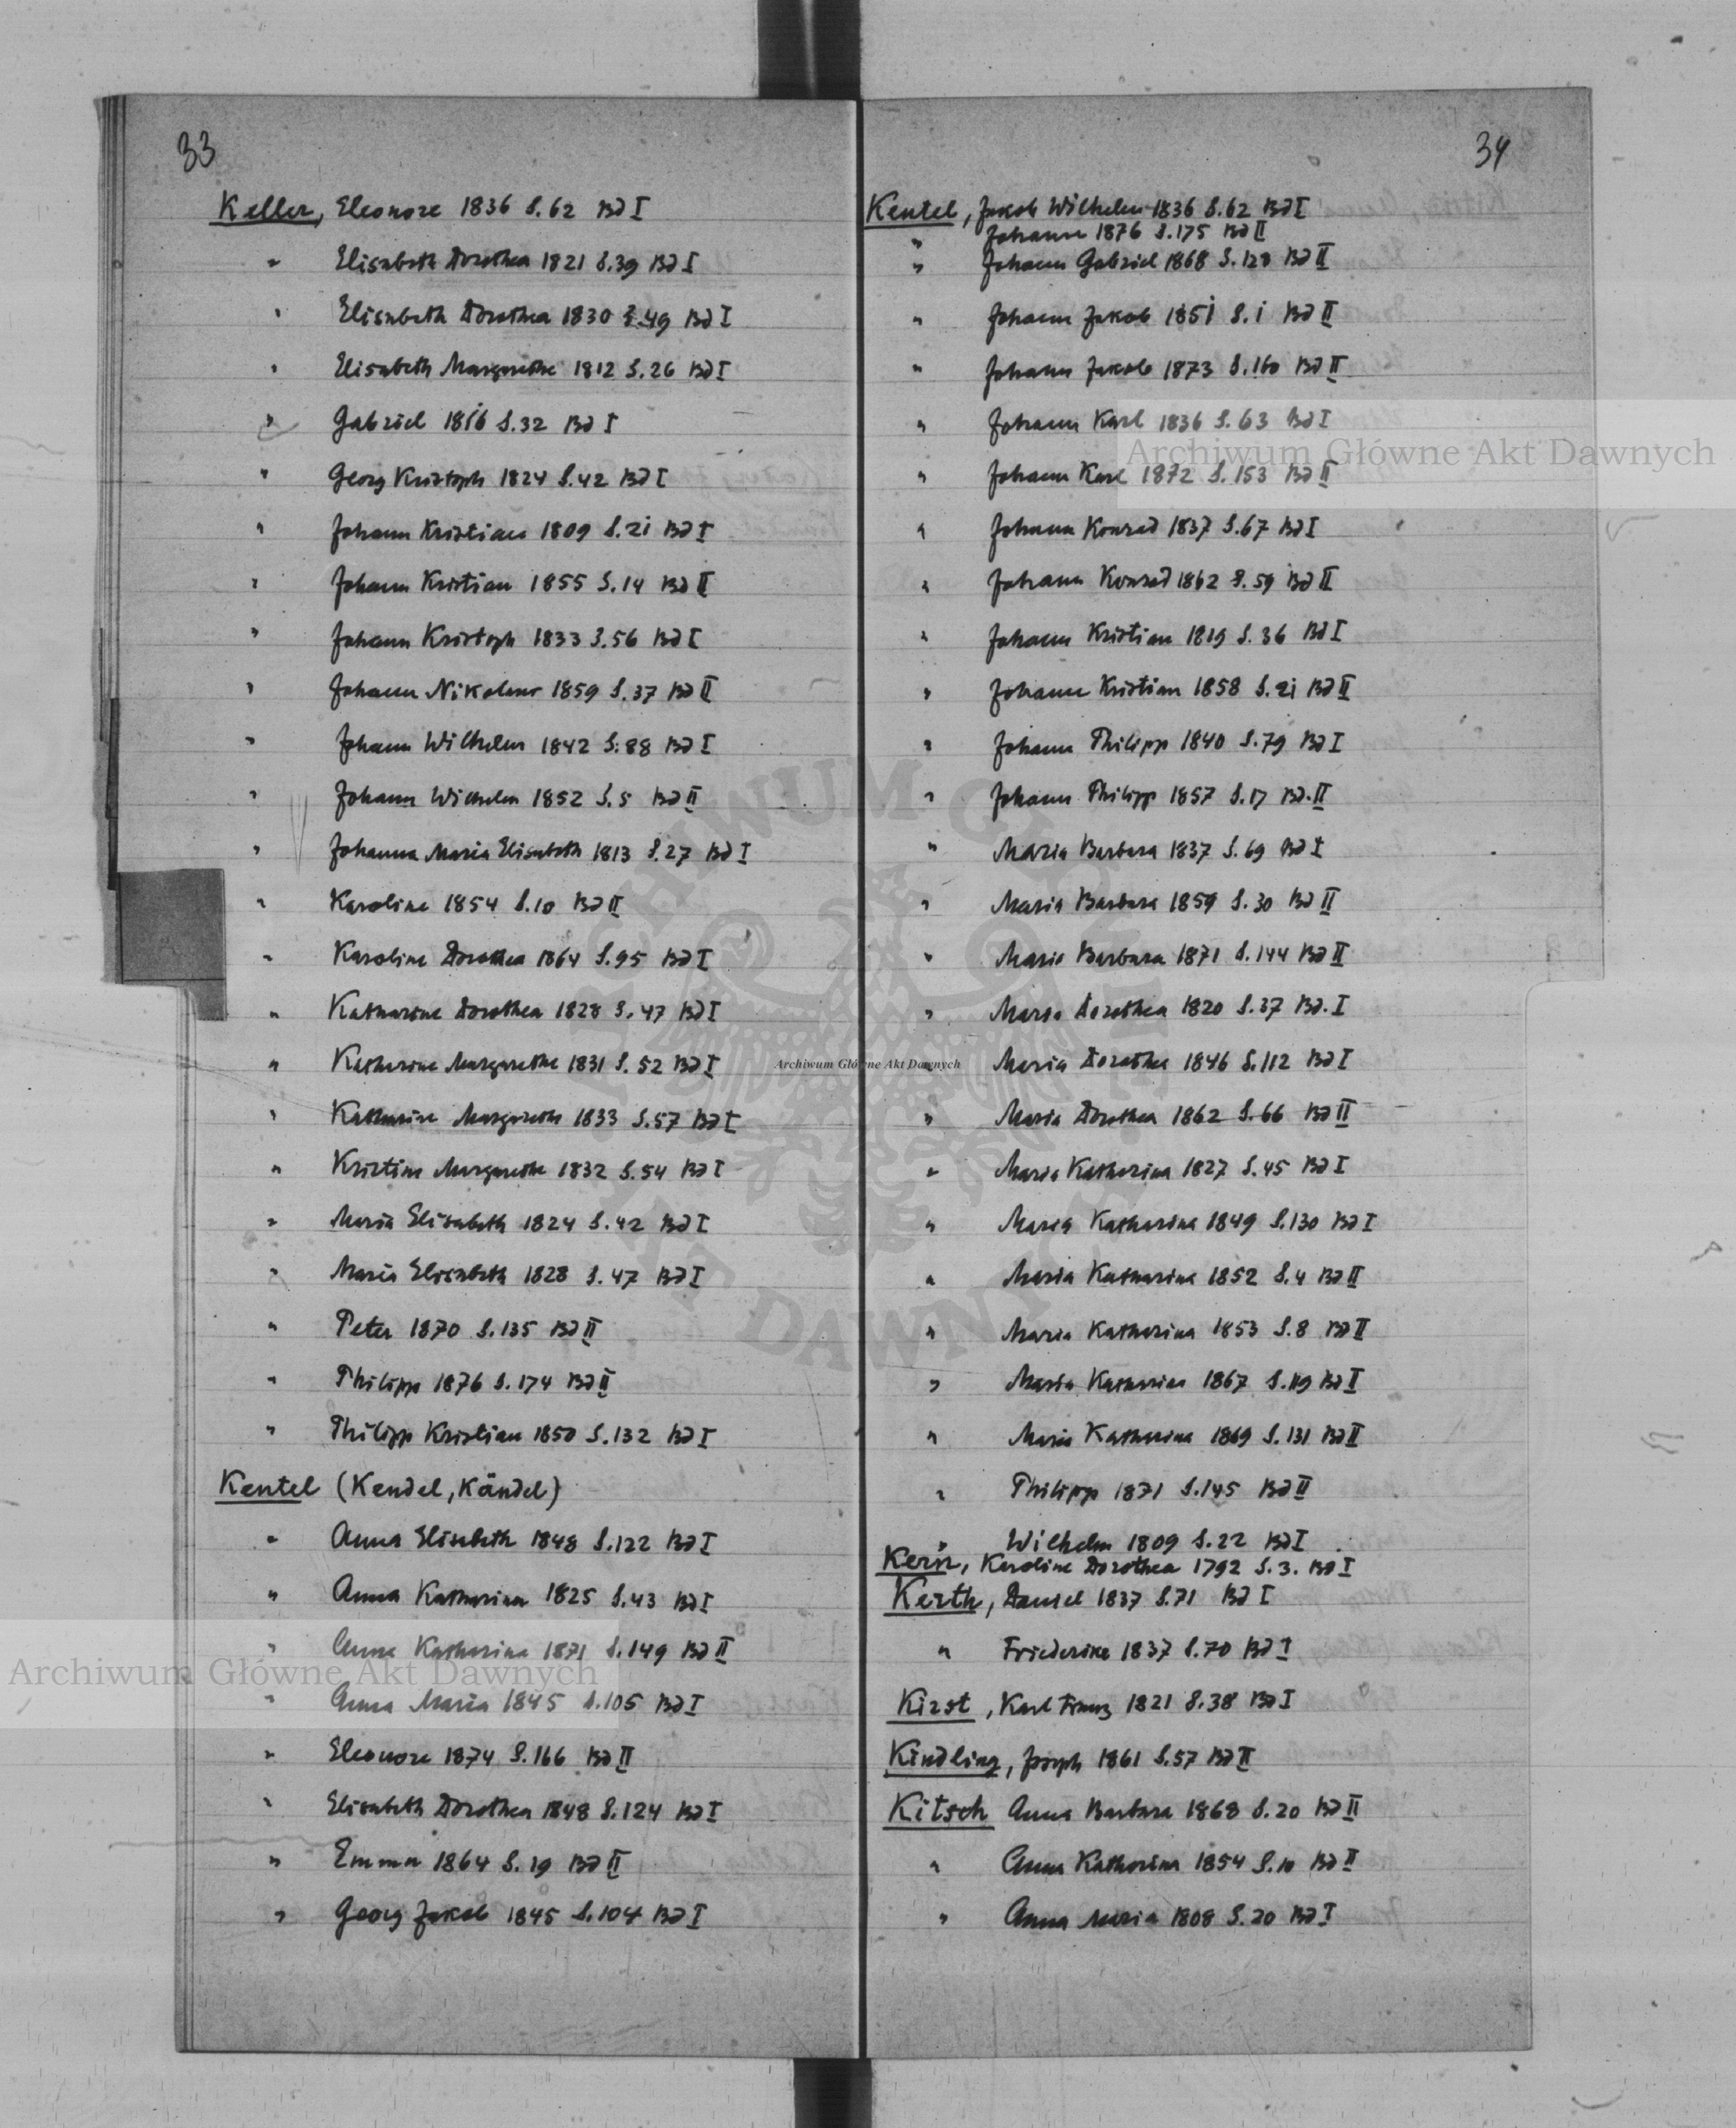 33
Keller, Eleonore 1836 S.62 Bd I
" Elisabeth Dorothea 1821 S.39 Bd I
" Elisabeth Dorothea 1830 S.49 Bd I
" Elisabeth Margarethe 1812 S.26 Bd I
" Gabriel 1816 S.32 Bd I
" Georg Kristoph 1824 S.42 Bd I
" Johann Kristian 1809 S.21 Bd I
" Johann Kristian 1855 S.14 Bd II
" Johann Kristoph 1833 S.56 Bd I
" Johann Nikolaus 1859 S.37 Bd II
" Johann Wilhelm 1842 S.88 Bd I
" Johann Wilhelm 1852 S.5 Bd II
" Johanna Maria Elisabeth 1813 S.27 Bd I
" Karoline 1854 S.10 Bd II
" Karoline Dorothea 1864 S.95 Bd I
" Katharine Dorothea 1828 S.47 Bd I
" Katharine Margarethe 1831 S.52 Bd I
" Katharine Margarethe 1833 S.57 Bd I
" Kristine Margarethe 1832 S.54 Bd I
" Maria Elisabeth 1824 S.42 Bd I
" Maria Elisabeth 1828 S.47 Bd I
" Peter 1870 S.135 Bd II
" Philipp 1876 S.174 Bd II
" Philipp Kristian 1850 S.132 Bd I
Kentel (Kendel, Kändel)
" Anna Elisabeth 1848 S.122 Bd I
" Anna Katharina 1825 S.43 Bd I
" Anna Katharina 1871 S.149 Bd II
" Anna Maria 1845 S.105 Bd I
" Eleonore 1874 S.166 Bd II
" Elisabeth Dorothea 1848 S.124 Bd I
" Emma 1864 S.19 Bd II
" Georg Jakob 1845 S.104 Bd I
34
Kentel, Jakob Wilhelm 1836 S.62 Bd I
" Johann 1876 S.175 Bd II
" Johann Gabriel 1868 S.128 Bd II
" Johann Jakob 1851 S.1 Bd II
" Johann Jakob 1873 S.160 Bd II
" Johann Karl 1836 S.63 Bd I
" Johann Karl 1872 S.153 Bd II
" Johann Konrad 1837 S.67 Bd I
" Johann Konrad 1862 S.59 Bd II
" Johann Kristian 1819 S.36 Bd I
" Johann Kristian 1858 S.21 Bd II
" Johann Philipp 1840 S.79 Bd I
" Johann Philipp 1857 S.17 Bd.II
" Maria Barbara 1837 S.69 Bd I
" Maria Barbara 1859 S.30 Bd II
" Maria Barbara 1871 S.144 Bd II
" Maria Dorothea 1820 S.37 Bd.I
" Maria Dorothea 1846 S.112 Bd I
" Maria Dorothea 1862 S.66 Bd II
" Maria Katharina 1827 S.45 Bd I
" Maria Katharina 1849 S.130 Bd I
" Maria Katharina 1852 S.4 Bd II
" Maria Katharina 1853 S.8 Bd II
" Maria Katharina 1867 S.119 Bd I
" Maria Katharina 1869 S.131 Bd II
" Philipp 1871 S.145 Bd II
" Wilhelm 1809 S.22 Bd I
Kern, Karoline Dorothea 1792 S.3. Bd I
Kerth, Daniel 1837 S.71 Bd I
" Friederike 1837 S.70 Bd I
Kirst, Karl Franz 1821 S.38 Bd I
Kindling, Joseph 1861 S.57 Bd II
Kitsch Anna Barbara 1868 S.20 Bd II
" Anna Katharina 1854 S.10 Bd II
" Anna Maria 1808 S.20 Bd I
Archiwum Główne Akt Dawnych
Archiwum Główne Akt Dawnych
Archiwum Główne Akt Dawnych